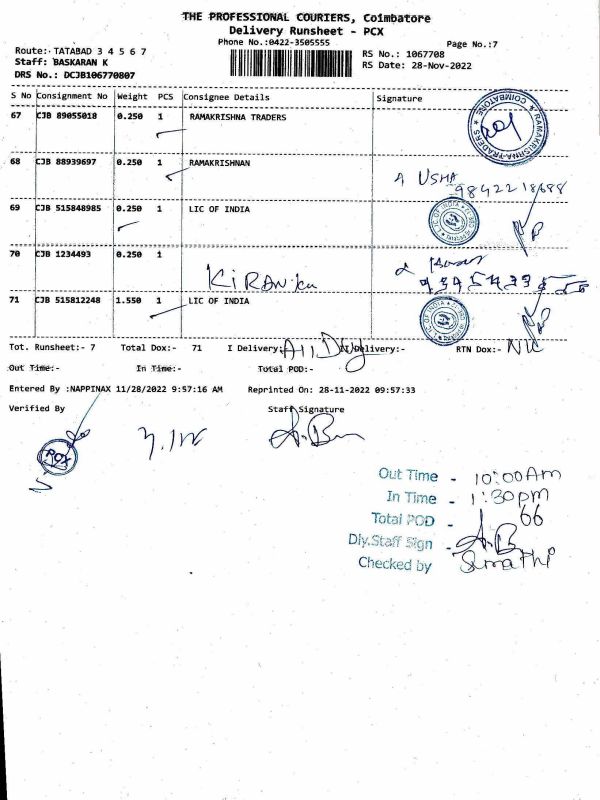 THE PROFESSIONAL COURIERS, Coimbatore
Delivery Runsheet - PCX
Phone No.:0422-3505555
Page No.:7
Route: TATABAD 3 4 5 6 7
Staff: BASKARAN K
DRS No.: DCJB106770807
RS No.: 1067708
RS Date: 28-Nov-2022
S No Consignment No Weight PCS Consignee Details Signature
67 CJB 89055018 0.250 1 RAMAKRISHNA TRADERS
RAMAKRISHNA TRADERS ★ COIMBATORE ★
68 CJB 88939697 0.250 1 RAMAKRISHNAN
USHA
9842218688
69 CJB 515848985 0.250 1 LIC OF INDIA
LIC OF INDIA
70 CJB 1234493 0.250 1
KIRAN
71 CJB 515812248 1.550 1 LIC OF INDIA
LIC OF INDIA
Tot. Runsheet:- 7 Total Dox:- 71 I Delivery:- All Dly II Delivery:- RTN Dox:- NIL
Out Time:- In Time:- Total POD:-
Entered By :NAPPINAX 11/28/2022 9:57:16 AM Reprinted On: 28-11-2022 09:57:33
Verified By Staff Signature
PCX
Out Time - 10:00Am
In Time - 1:30pm
Total POD - 66
Dly.Staff Sign - A.B
Checked by Sumathi